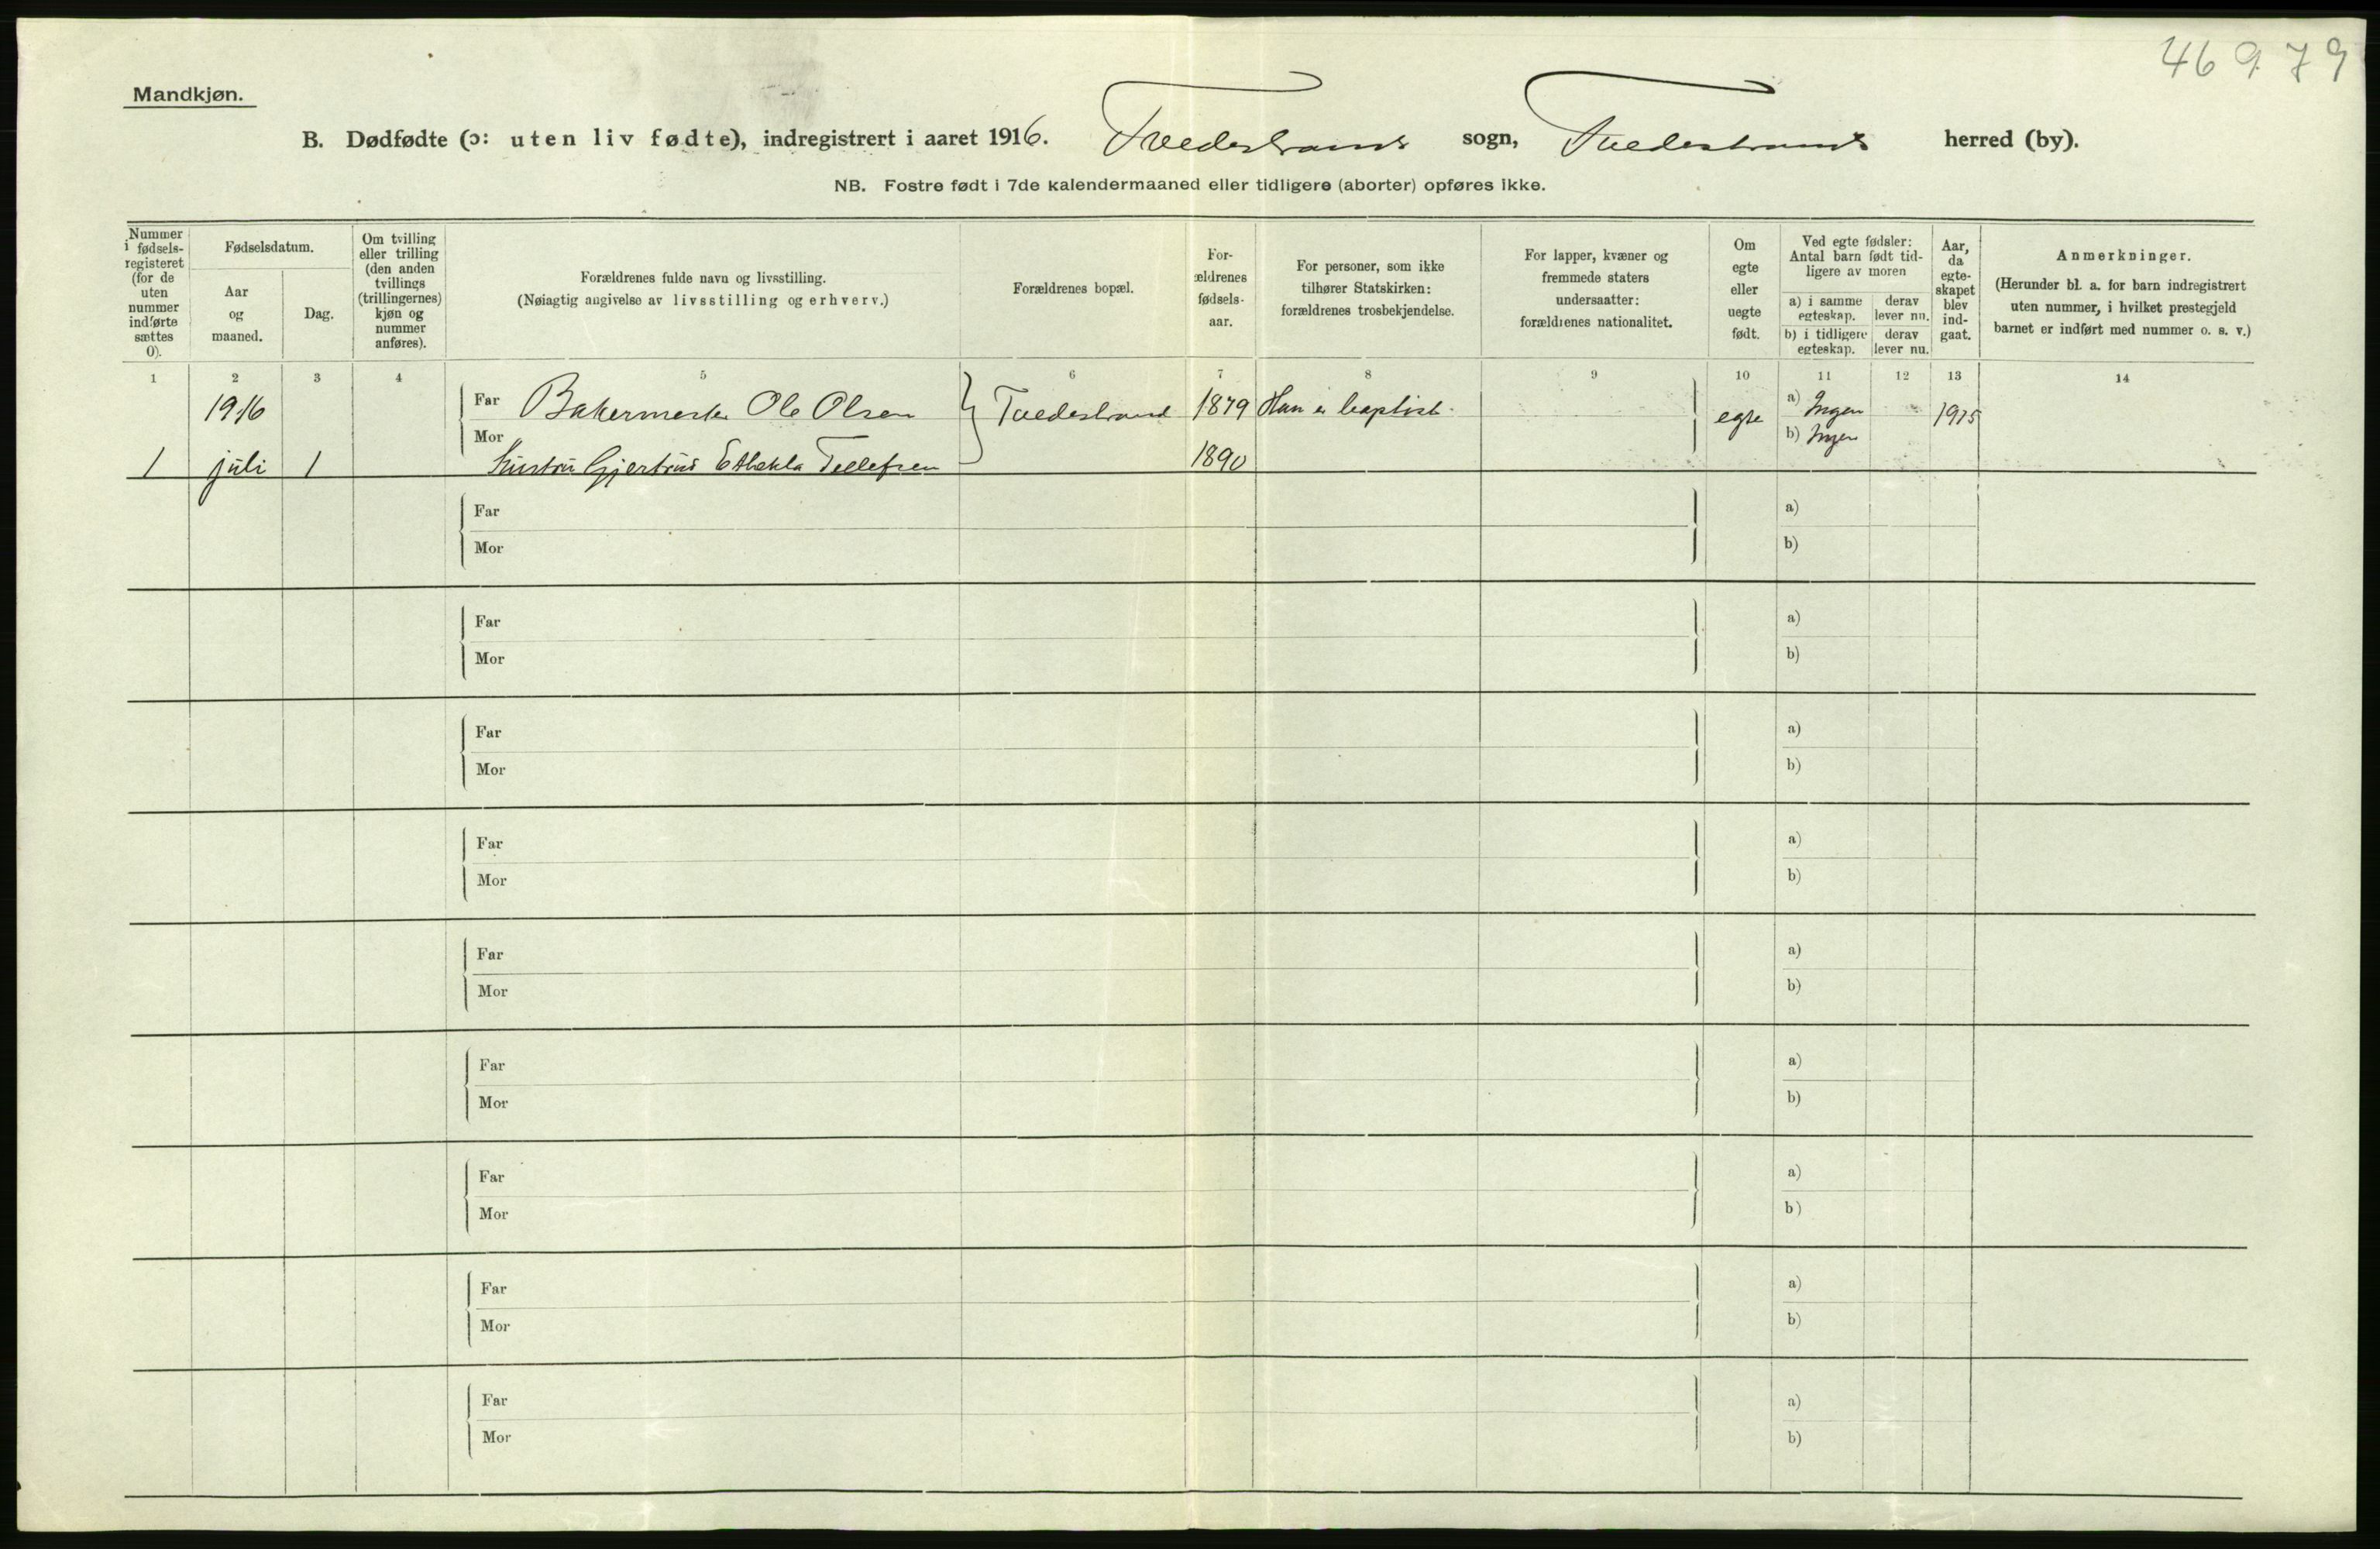 46979
Mandkjøn.
B. Dødfødte (ɔ: uten liv fødte), indregistrert i aaret 1916. Tvedestrand sogn, Tvedestrand herred (by).
NB. Fostre født i 7de kalendermaaned eller tidligere (aborter) opføres ikke.
Nummer i fødsels-registeret (for de uten nummer indførte sættes 0).
Fødselsdatum.
Aar og maaned.
Dag.
Om tvilling eller trilling (den anden tvillings (trillingernes) kjøn og nummer anføres).
Forældrenes fulde navn og livsstilling.
(Nøiagtig angivelse av livsstilling og erhverv.)
Forældrenes bopæl.
For-ældrenes fødsels-aar.
For personer, som ikke tilhører Statskirken: forældrenes trosbekjendelse.
For lapper, kvæner og fremmede staters undersaatter: forældrenes nationalitet.
Om egte eller uegte født.
Ved egte fødsler: Antal barn født tid-ligere av moren
a) i samme egteskap.
derav lever nu.
b) i tidligere egteskap.
derav lever nu.
Aar, da egte-skapet blev ind-gaat.
Anmerkninger.
(Herunder bl. a. for barn indregistrert uten nummer, i hvilket prestegjeld barnet er indført med nummer o. s. v.)
1 2 3 4 5 6 7 8 9 10 11 12 13 14
1916 Far Bakermester Ole Olsen Tvedestrand 1879 Han er baptist. egte a) Ingen 1915
Mor b) Ingen
1 juli 1 Hustru Gjertrud Tellefsen 1890
Far a)
Mor b)
Far a)
Mor b)
Far a)
Mor b)
Far a)
Mor b)
Far a)
Mor b)
Far a)
Mor b)
Far a)
Mor b)
Far a)
Mor b)
Far a)
Mor b)